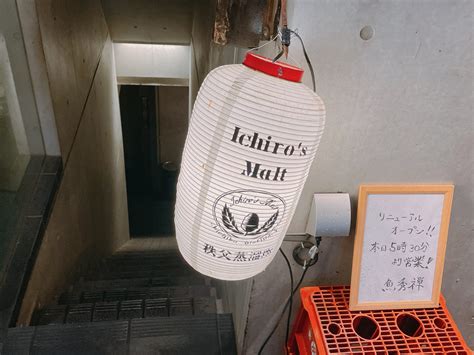 Ichiro's
Malt
Ichiro's Malt
秩父蒸溜所
リニューアル
オープン!!
本日5時30分
より営業!!
魚秀禅